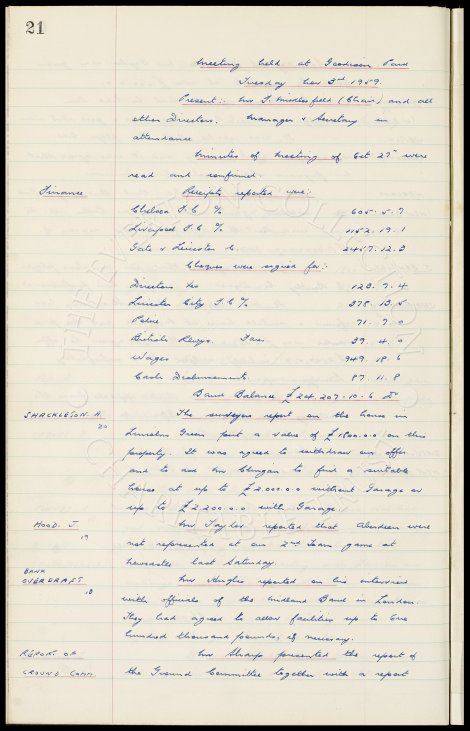 21
Meeting held at Goodison Park
Tuesday Nov 3rd 1959.
Present:- Mr F. Micklesfield (Chair) and all
other Directors. Manager & Secretary in
attendance
Minutes of Meeting of Oct 27th were
read and confirmed.
Finance Receipts reported were:-
Chelsea F.C % 605. 5. 7
Liverpool F.C % 1152. 19. 1
Gate v Leicester C. 2457. 12. 3
Cheques were signed for:-
Directors 123. 7. 4
Leicester City F.C % 378. 13. 5
Police 71. 7. 0
British Rlwys. Fares 39. 4. 0
Wages 949. 18. 6
Cash Disbursements 87. 11. 8
Bank Balance £24,207-10-6
SHACKLETON. A. The surveyors report on the house in
20
Lincolns Green put a value of £1800.0.0 on this
property. It was agreed to withdraw our offer
and to ask Mr to find a suitable
house at up to £2,000.0.0 without Garage or
up to £2,200.0.0 with Garage.
HOOD. J. Mr Taylor reported that Aberdeen were
19
not represented at our 2nd Team game at
Newcastle last Saturday.
BANK
OVERDRAFT Mr Hughes reported on his interview
18
with officials of the Midland Bank in London:
They had agreed to allow facilities up to One
hundred thousand pounds, if necessary.
REPORT OF Mr Sharp presented the report of
GROUND COMM. the Ground Committee together with a report
THE EVERTON COLLECTION